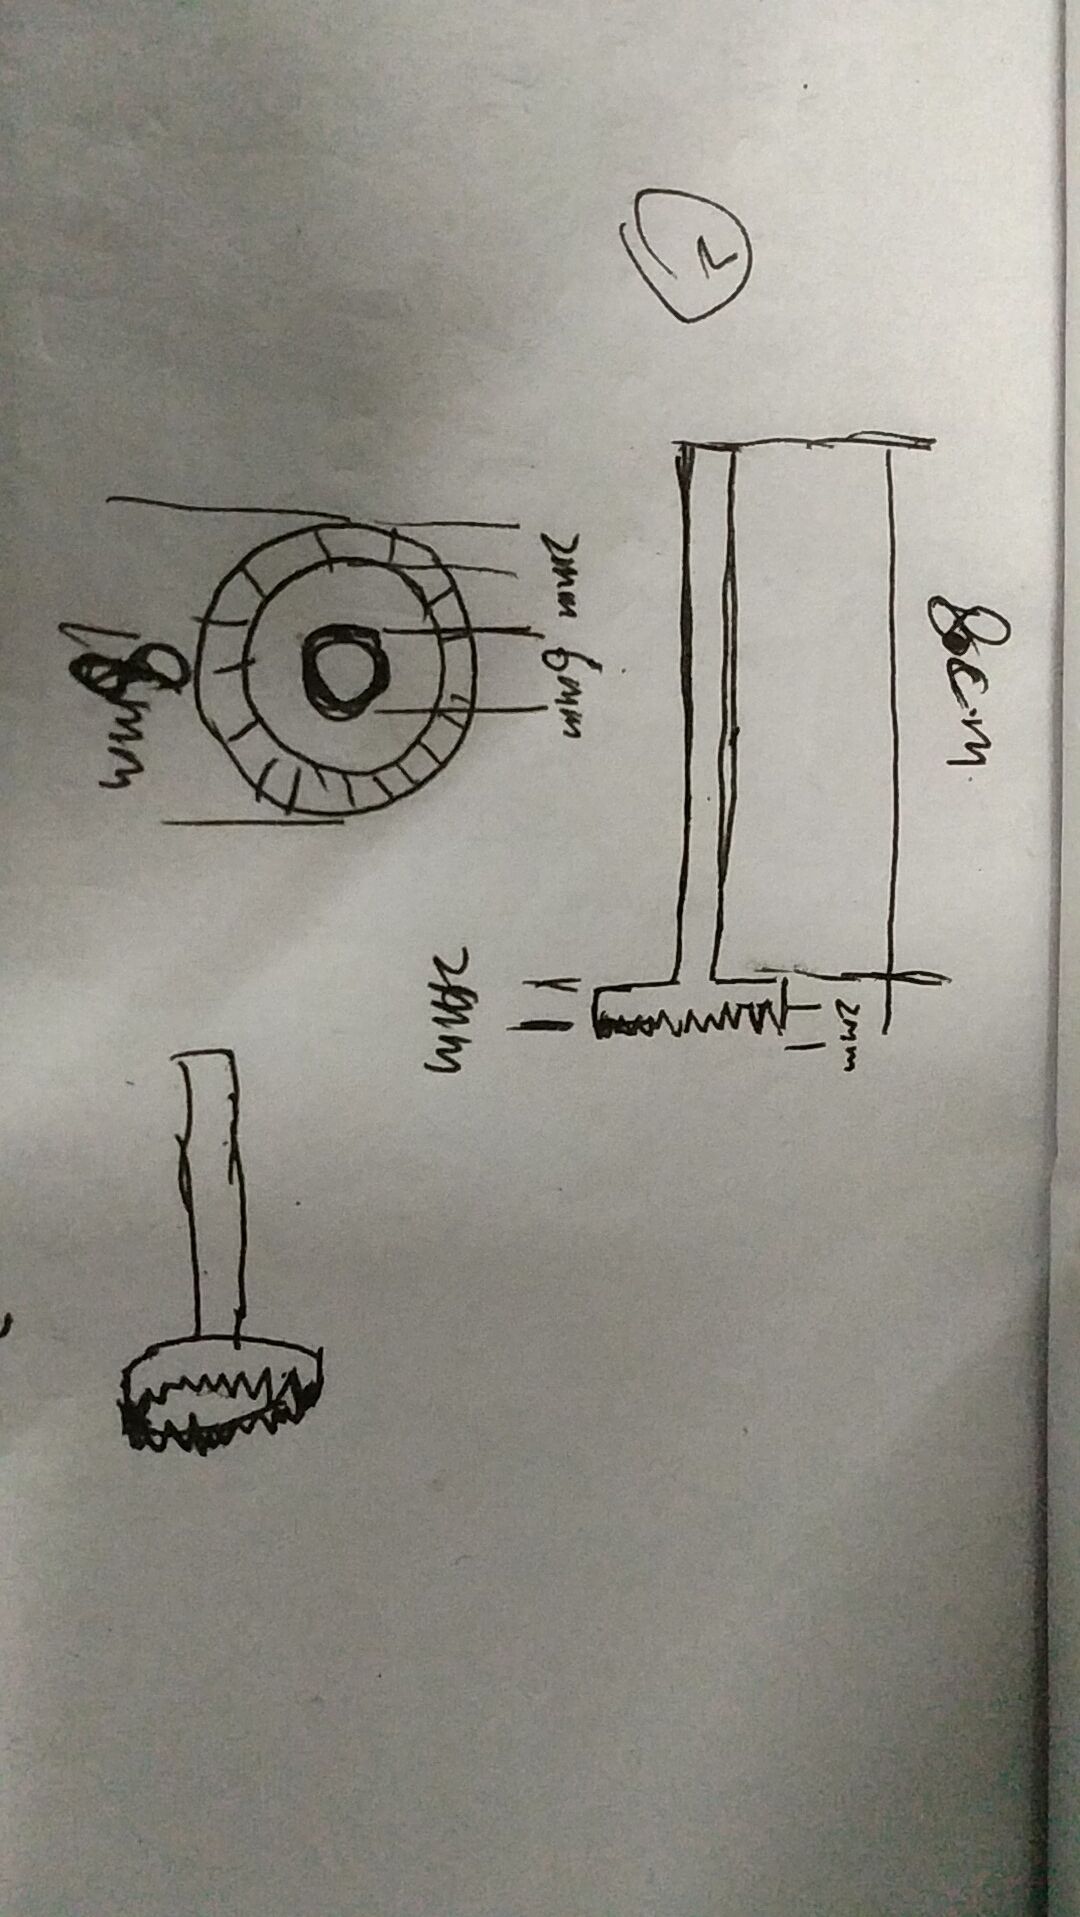 8cm
2mm
2
2mm 6mm
2mm
18mm